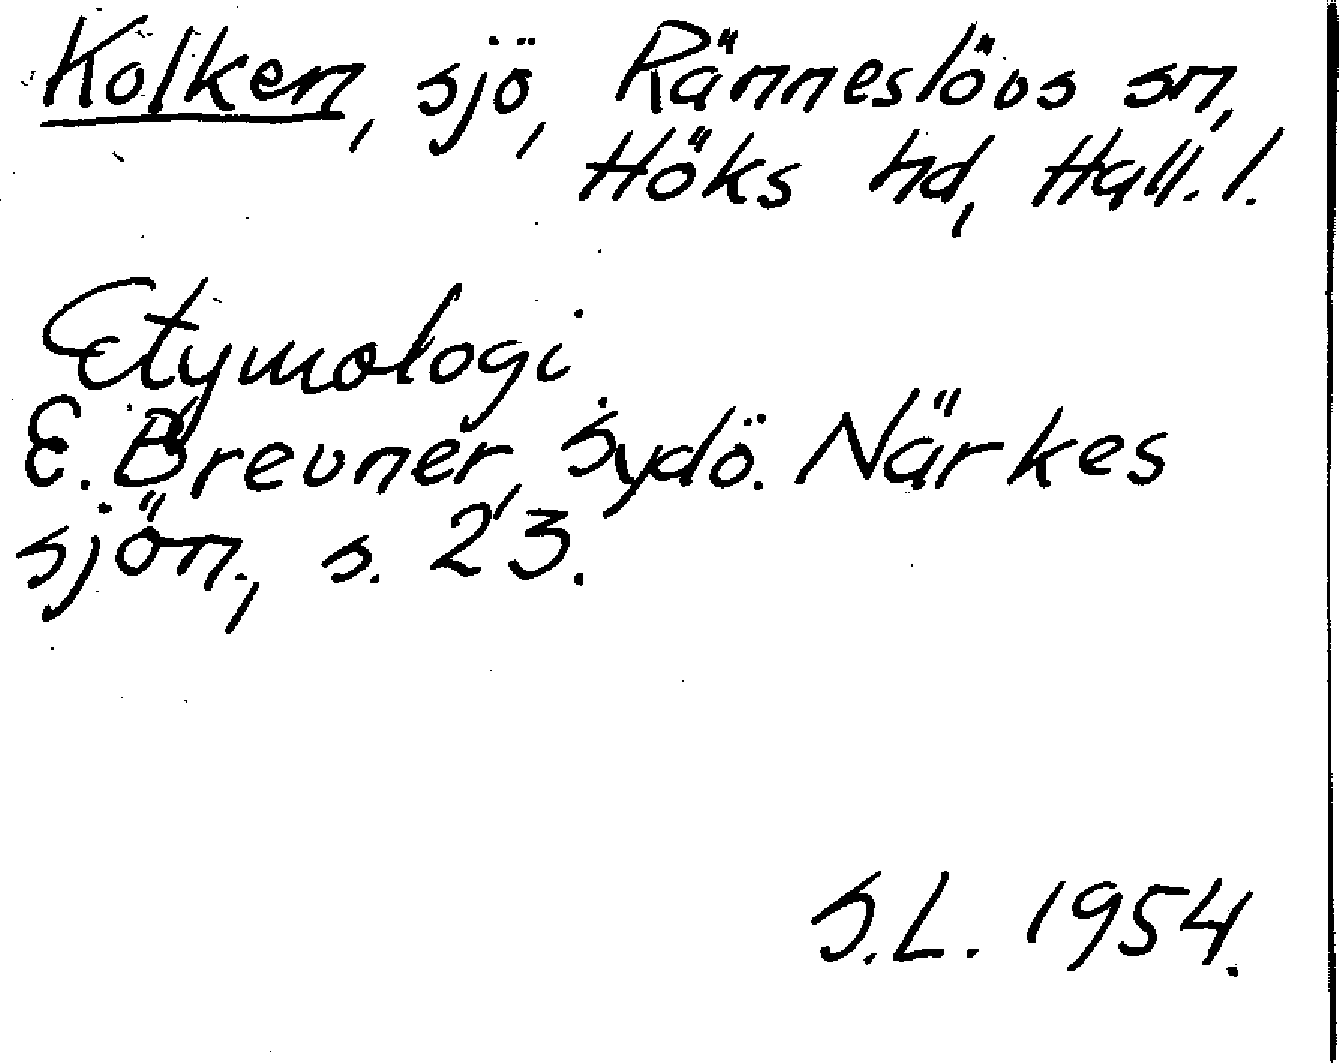 Kolken, sjö, Ränneslövs sn,
Höks hd, Hall. l.
Etymologi.
E. Brevner, Sydö. Närkes
sjön., s. 23.
S.L. 1954.